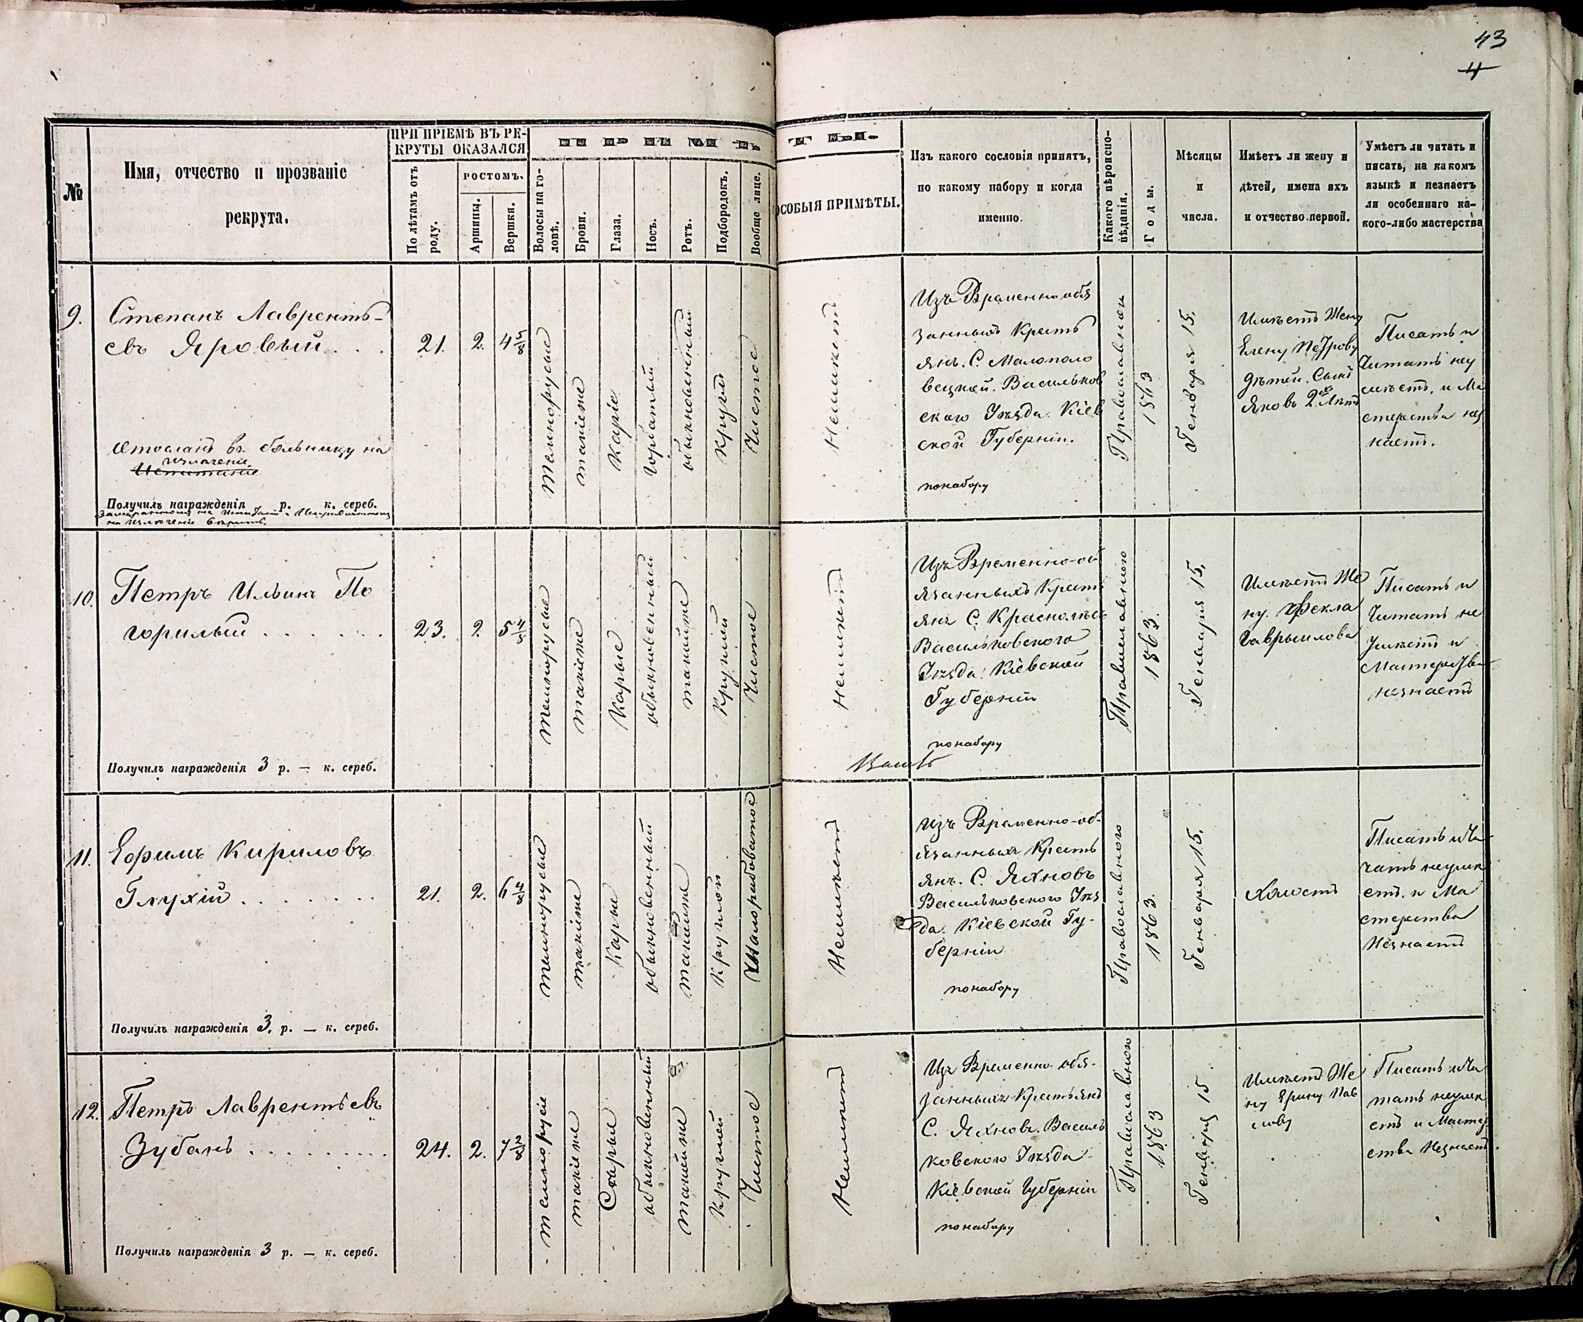 43
4
№
Имя, отчество и прозваніе
рекрута.
ПРИ ПРІЕМѢ ВЪ РЕ-
КРУТЫ ОКАЗАЛСЯ
По лѣтамъ отъ
роду.
ростомъ.
Аршины.
Вершки.
Волосы на го-
ловѣ.
Брови.
Глаза.
Носъ.
Ротъ.
Подбородокъ.
Вообще лице.
ОСОБЫЯ ПРИМѢТЫ.
Изъ какого сословія принятъ,
по какому набору и когда
именно.
Какого вѣроиспо-
вѣданія.
Годы.
Мѣсяцы
и
числа.
Имѣетъ ли жену и
дѣтей, имена ихъ
и отчество первой.
Умѣетъ ли читать и
писать, на какомъ
языкѣ и незнаетъ
ли особеннаго ка-
кого-либо мастерства
9.
Степанъ Лавренть-
евъ Яровый . . .
Отосланъ въ больницу на
излѣченіе
Получилъ награжденія р. к. сереб.
21.
2.
4 5/8
темнорусые
такіеже
Каріе
горбатый
обыкновенный
Круглъ
Чистое
Неимѣетъ
Изъ Временно-обя
занныхъ Кресть
янъ. С. Малополо
вецкой. Васильков
скаго Уѣзда. Кіев
ской Губерніи.
по набору
Православной
1863
Генваря 15.
Имѣетъ Жену
Елену Петрову
дѣтей. Сынъ
Яковъ 2 Лѣтъ
Писать и
Читать неу
мѣетъ. и Ма
стерства нез
наетъ.
10.
Петръ Ильинъ По
горилый . . . . . .
Получилъ награжденія 3 р. — к. сереб.
23.
2.
5 4/8
темнорусые
такіеже
Карые
обыкновенный
такойже
Круглый
Чистое
Неимѣетъ
Изъ Временно-об
язанныхъ Крест
янъ С. Краснолѣс
Васильковского
Уѣзда. Кіевской
Губерніи
по набору
Православного
1863.
Генваря 15.
Имѣетъ Же
ну. Фекла
Гаврылова
Писать и
Читать не
Умѣетъ и
Мастерства
незнаетъ
11.
Ефимъ Кириловъ
Глухій . . . . . . .
Получилъ награжденія 3. р. — к. сереб.
21.
2.
6 4/8
темнорусые
такіеже
Карые
обыкновенный
такойже
Круглой
Неимѣетъ
Изъ Временно-об-
язанныхъ Кресть
янъ. С. Яхновъ
Васильковского Уѣз
да. Кіевской Гу-
берніи
по набору
Православного
1863.
Генваря 15.
Холостъ
Писать и Чи
тать неумѣ
етъ. и Ма
стерства
Незнаетъ
12.
Петръ Лаврентьевъ
Зубань . . . . . . . .
Получилъ награжденія 3 р. — к. сереб.
24.
2.
7 2/8
темнорусы
такіеже
Сѣрые
обыкновенный
такойже
Круглый
Чистое
Неимѣетъ
Изъ Временно-обя-
занныхъ Крестьянъ
С. Яхнова. Василь
ковского Уѣзда
Кіевской Губерніи
по набору
Православной
1863
Генваря 15
Имѣетъ Же
ну Ерину Пав
лову
Писать и Чи
тать неумѣ
етъ и Масте
рства Незнаетъ.